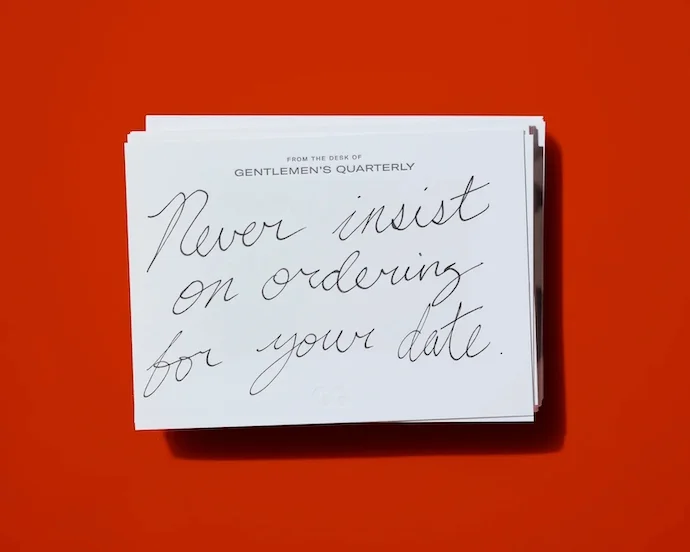 FROM THE DESK OF
GENTLEMEN'S QUARTERLY
Never insist
on ordering
for your date.